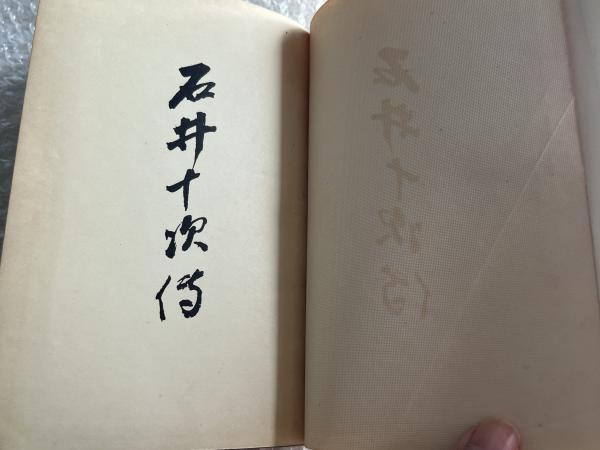 石井十次傳